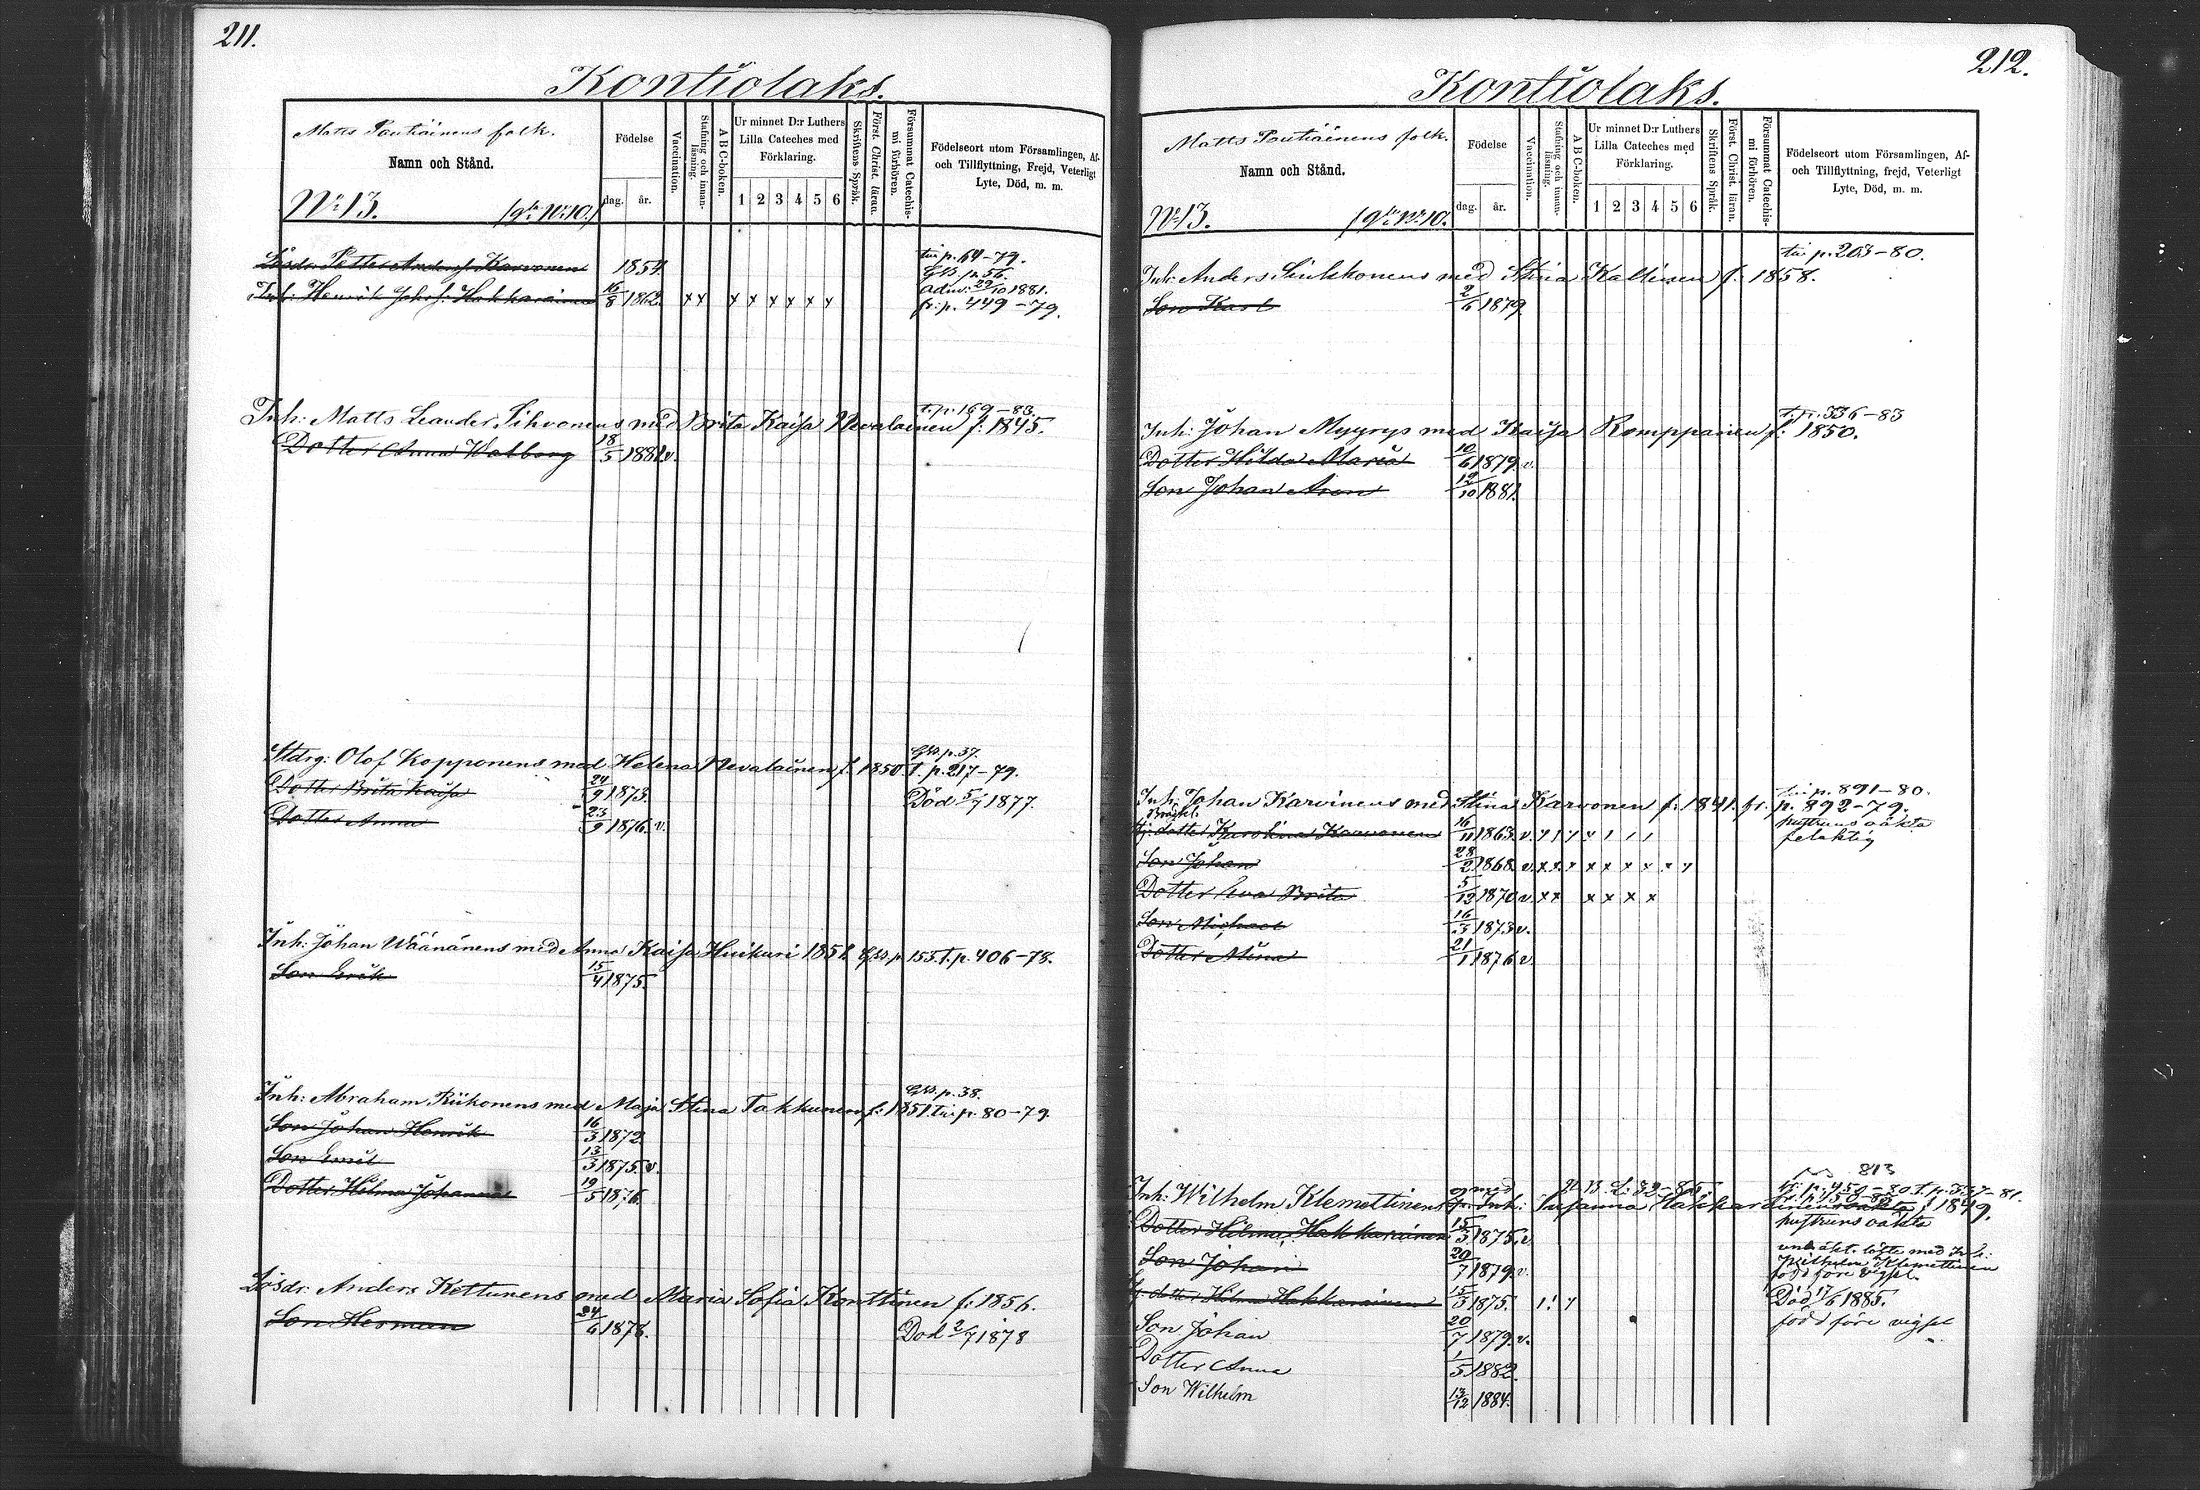 211.
Kontiolaks.
Matts Pautiainens folk.
Namn och Stånd.
No: 13. (gla No: 10.)
Födelse
dag. år.
Vaccination.
Stafning och innanläsning.
A B C-boken.
Ur minnet D:r Luthers Lilla Cateches med Förklaring.
1 2 3 4 5 6
Skriftens Språk.
Först. Christ. läran.
Försummat Catechismi förhören.
Födelseort utom Församlingen, Af- och Tillflyttning, Frejd, Veterligt Lyte, Död, m. m.
Lösdr: Petter Andersf. Karvonen 1854. tir p. 64-79.
GB. p. 56.
Inh: Henrik Johsf: Hakkarainen 16/8 1862. x x x x x x x x adm: 22/10 1881.
fr: p. 449-79.
t. p. 169-83.
Inh: Matts Leander Sihvonens med Brita Kaisa Nevalainen f: 1845.
Dotter Anna Walborg 18/5 1881. v.
GB. p. 37.
Stdrg: Olof Kopponens med Helena Nevalainen f: 1850 T. p. 217-79.
Dotter Brita Kaisa 24/9 1873. Död 5/7 1877.
Dotter Anna 23/9 1876. v.
Inh: Johan Wäänänens med Anna Kaisa Hiukuri 1851 GB p 155. T. p. 406-78.
Son Erik 15/4 1875.
GB. p. 38.
Inh: Abraham Riikonens med Maja Stina Takkunen f: 1851. tir p. 80-79.
Son Johan Henrik 16/3 1872.
Son Emil 13/3 1875. v.
Dotter Hilma Johanna 19/5 1876.
Lösdr: Anders Kettunens med Maria Sofia Konttinen f: 1856.
Son Herman 24/6 1878. Död 2/7 1878
212.
Kontiolaks.
Matts Pautiainens folk.
Namn och Stånd.
No: 13. (gla No: 10.
Födelse
dag. år.
Vaccination.
Stafning och innanläsning.
A B C-boken.
Ur minnet D:r Luthers Lilla Cateches med Förklaring.
1 2 3 4 5 6
Skriftens Språk.
Först. Christ. läran.
Försummat Catechismi förhören.
Födelseort utom Församlingen, Af- och Tillflyttning, frejd, Veterligt Lyte, Död, m. m.
tir p. 203-80.
Inh: Anders Sinkkonens med Stina Kaltinen f: 1858.
Son Karl 2/6 1879
t. p. 336-83
Inh: Johan Myyrys med Kaisa Romppanen f: 1850.
Dotter Hilda Maria 10/6 1879. v.
Son Johan Aron 12/10 1881.
tir p. 891-80.
Inh: Johan Karvinens med Stina Karvonen f: 1841. fr. p. 892-79.
dotter Karolina Karvonen 16/11 1863. v. hustruns oäkta
felaktig
Son Johan 28/2 1868. v. x x x x x x x x x
Dotter Eva Brita 5/12 1870 v. x x x x x x
Son Michael 16/5 1873 v.
Dotter Stina 21/1 1876 v.
813
Inh: Wilhelm Klemettinens med Inh: Susanna Hakkarainen f 1849.
Dotter Hilma Hakkarainen 15/3 1875. v. hustruns oäkta
Son Johan 20/7 1879. v. med Inh: Wilhelm Klemettinen
född före vigsel.
dotter Hilma Hakkarainen 15/3 1875. Död 17/6 1885.
Son Johan 20/7 1879. v. född före vigsel
Dotter Anna 1/5 1882.
Son Wilhelm 13/12 1884.